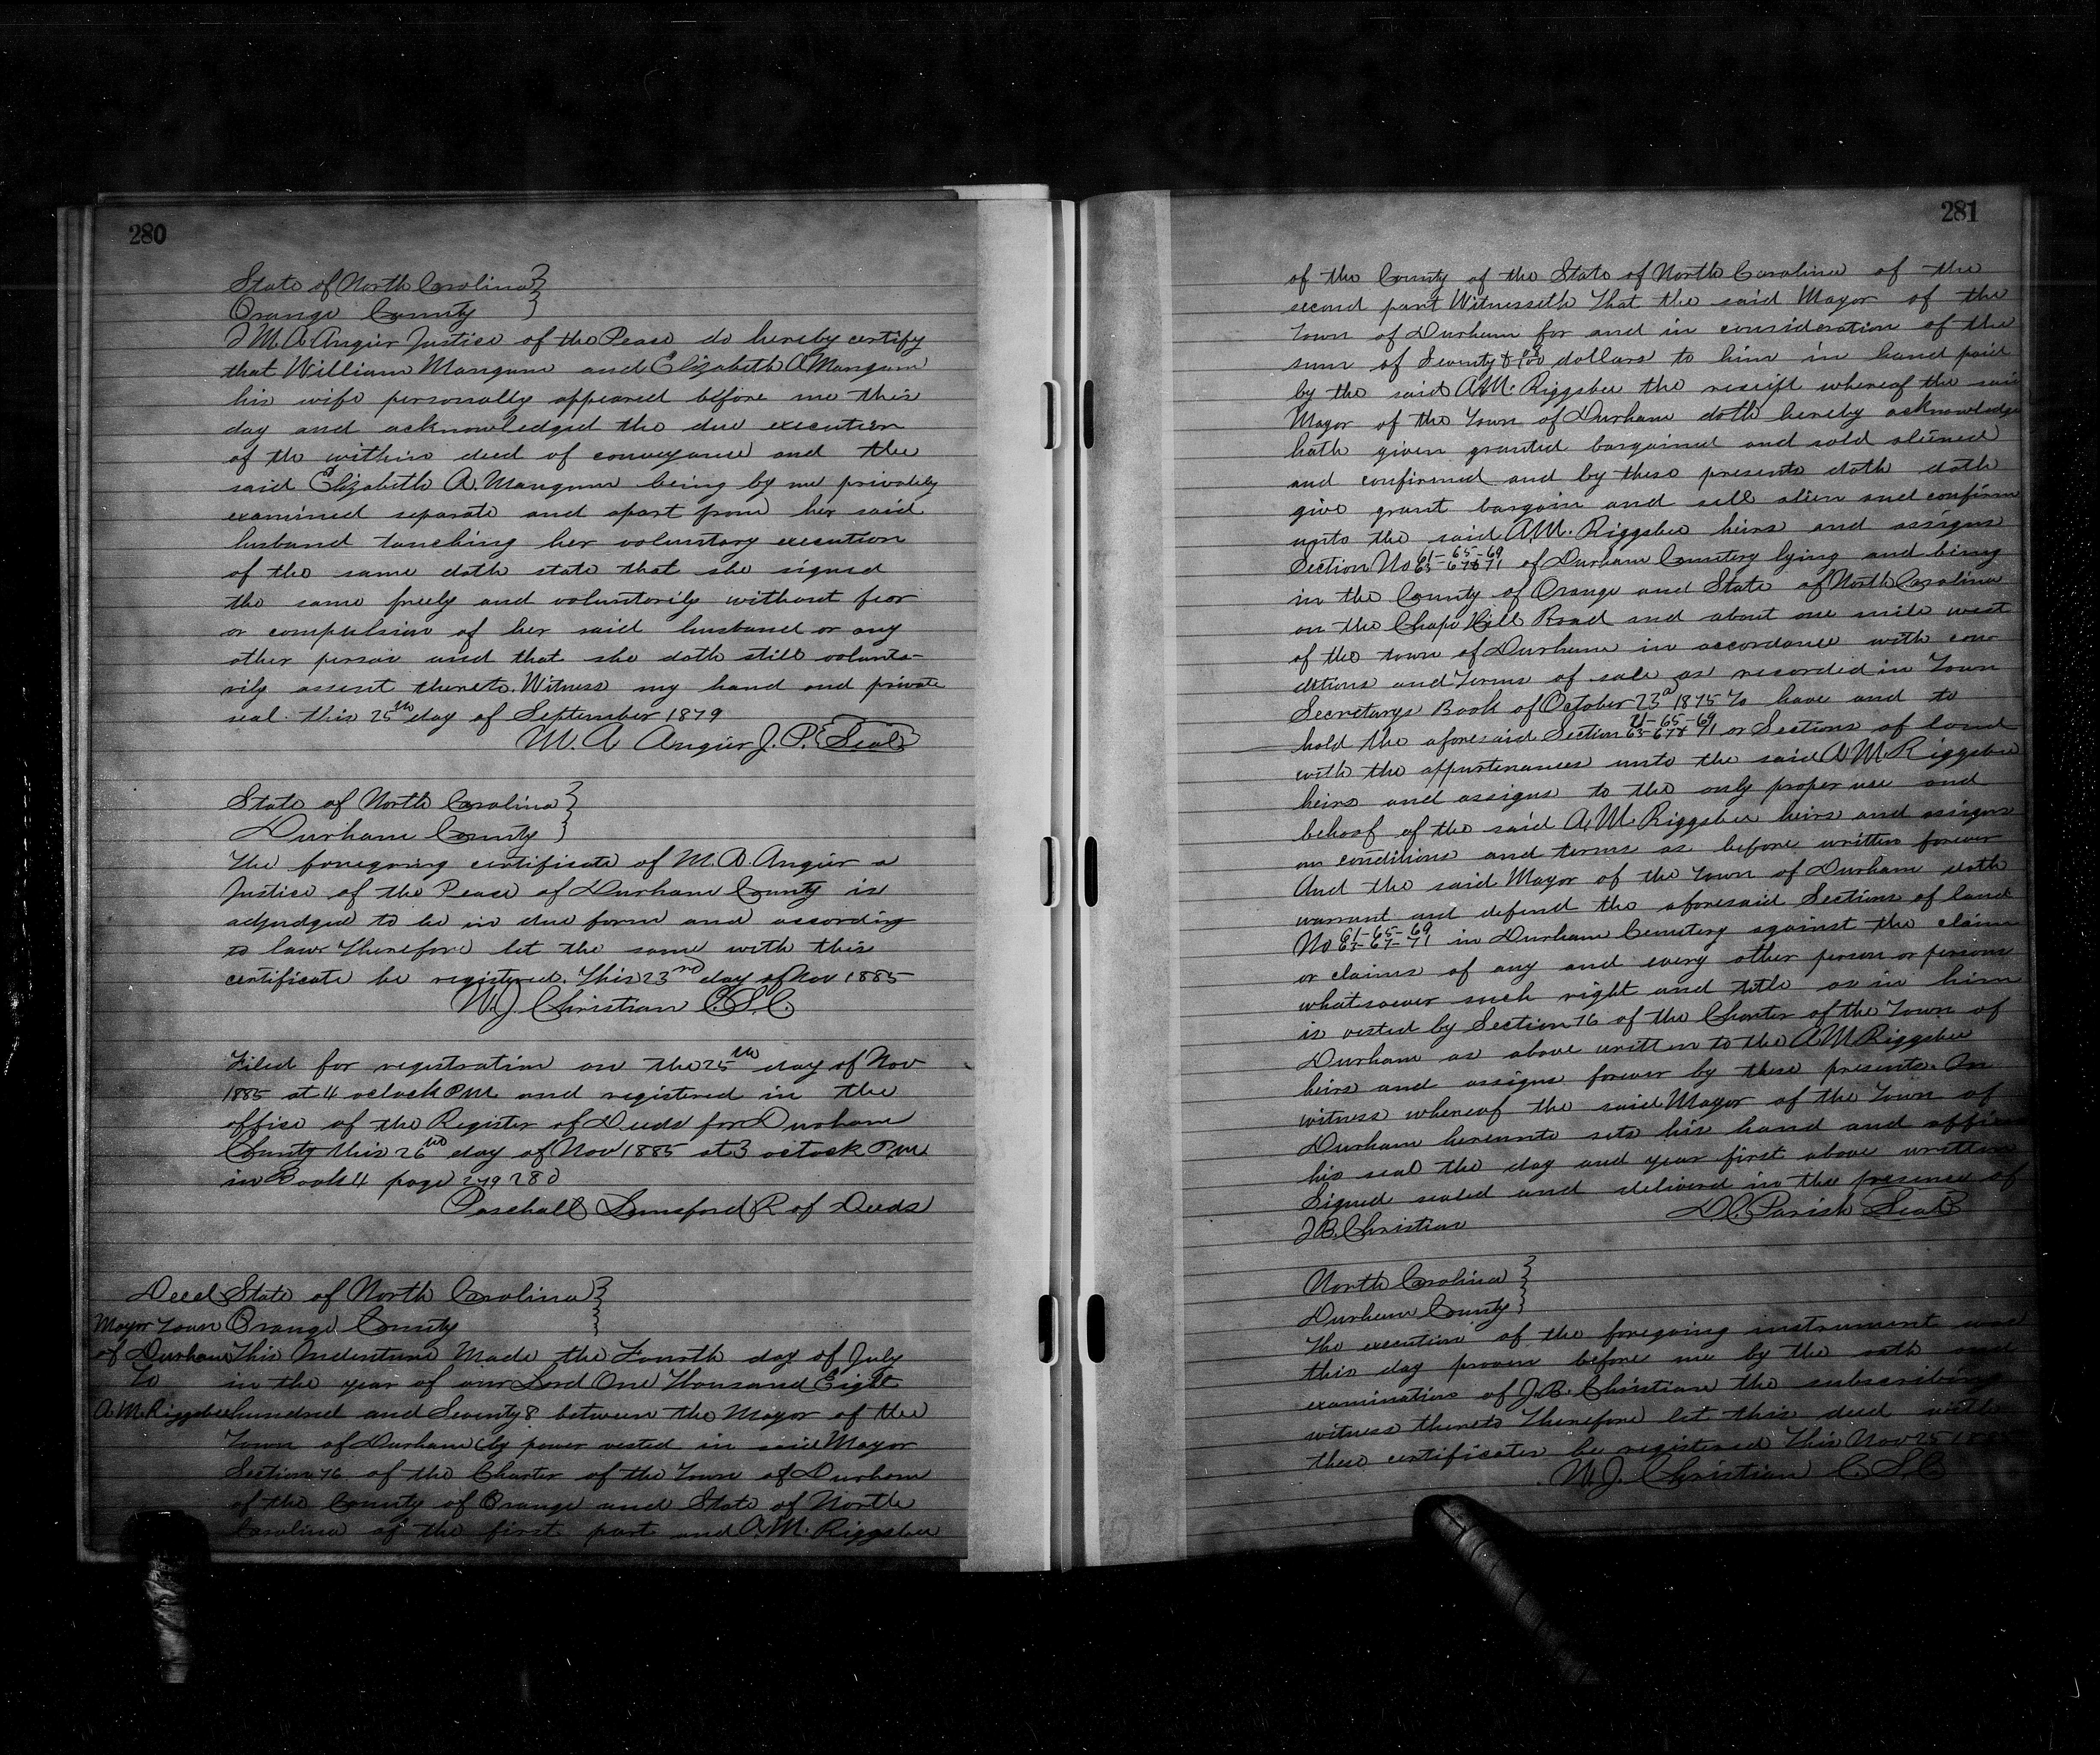 280
State of North Carolina }
Orange County }
I M. A. Angier Justice of the Peace do hereby certify
that William Mangum and Elizabeth A Mangum
his wife personally appeared before me this
day and acknowledged the due execution
of the within deed of conveyance and the
said Elizabeth A. Mangum being by me privately
examined separate and apart from her said
husband touching her voluntary execution
of the same doth state that she signed
the same freely and voluntarily without fear
or compulsion of her said husband or any
other person and that she doth still volunta-
rily assent thereto. Witness my hand and private
seal. this 25th day of September 1879
M. A Angier J. P. {Seal}
State of North Carolina }
Durham County }
The foregoing certificate of M. A. Angier a
Justice of the Peace of Durham County is
adjudged to be in due form and according
to law. Therefore let the same with this
certificate be registered. This 23rd day of Nov 1885
W. J. Christian C.S.C.
Filed for registration on the 25th day of Nov
1885 at 4 oclock PM and registered in the
office of the Register of Deeds for Durham
County this 26th day of Nov 1885 at 3 oclock P.M
in Book 4 page 279 280
Paschall Lunsford R of Deeds
Deed State of North Carolina }
Mayor Town Orange County }
of Durham This Indenture Made the Fourth day of July
To in the year of our Lord One Thousand Eight
A. M. Riggsbee hundred and Seventy 8 between the Mayor of the
Town of Durham by power vested in said Mayor
Section 76 of the Charter of the Town of Durham
of the County of Orange and State of North
Carolina of the first part and A. M. Riggsbee
281
of the County of the State of North Carolina of the
second part Witnesseth That the said Mayor of the
Town of Durham for and in consideration of the
sum of Seventy & dollars to him in hand paid
by the said A. M. Riggsbee the receipt whereof the said
Mayor of the Town of Durham doth hereby acknowledge
hath given granted bargained and sold aliened
and confirmed and by these presents doth doth
give grant bargain and sell alien and confirm
unto the said A. M. Riggsbee heirs and assigns
Section No 61-65-69 63-67&71 of Durham Cemetery lying and being
in the County of Orange and State of North Carolina
on the Chapel Hill Road and about one mile west
of the town of Durham in accordance with con-
ditions and Terms of sale as recorded in Town
Secretarys Book of October 23d 1875 To have and to
hold the aforesaid Section 61-65-69 63-67&71 or Sections of land
with the appurtenances unto the said A. M. Riggsbee
heirs and assigns to the only proper use and
behoof of the said A. M. Riggsbee heirs and assigns
on conditions and terms as before written forever
And the said Mayor of the Town of Durham doth
warrant and defend the aforesaid Sections of land
No 61-65-69 63-67-71 in Durham Cemetery against the claim
or claims of any and every other person or persons
whatsoever such right and title as in him
is vested by Section 76 of the Charter of the Town of
Durham as above written to the A. M. Riggsbee
heirs and assigns forever by these presents. In
witness whereof the said Mayor of the Town of
Durham hereunto sets his hand and affix
his seal the day and year first above written
Signed sealed and delivered in the presence of
J. B. Christian D. C. Parish Seal
North Carolina }
Durham County }
The execution of the foregoing instrument was
this day proven before me by the oath and
examination of J. B. Christian the subscribing
witness thereto Therefore let this deed with
these certificates be registered This Nov 25
W. J. Christian C. S. C